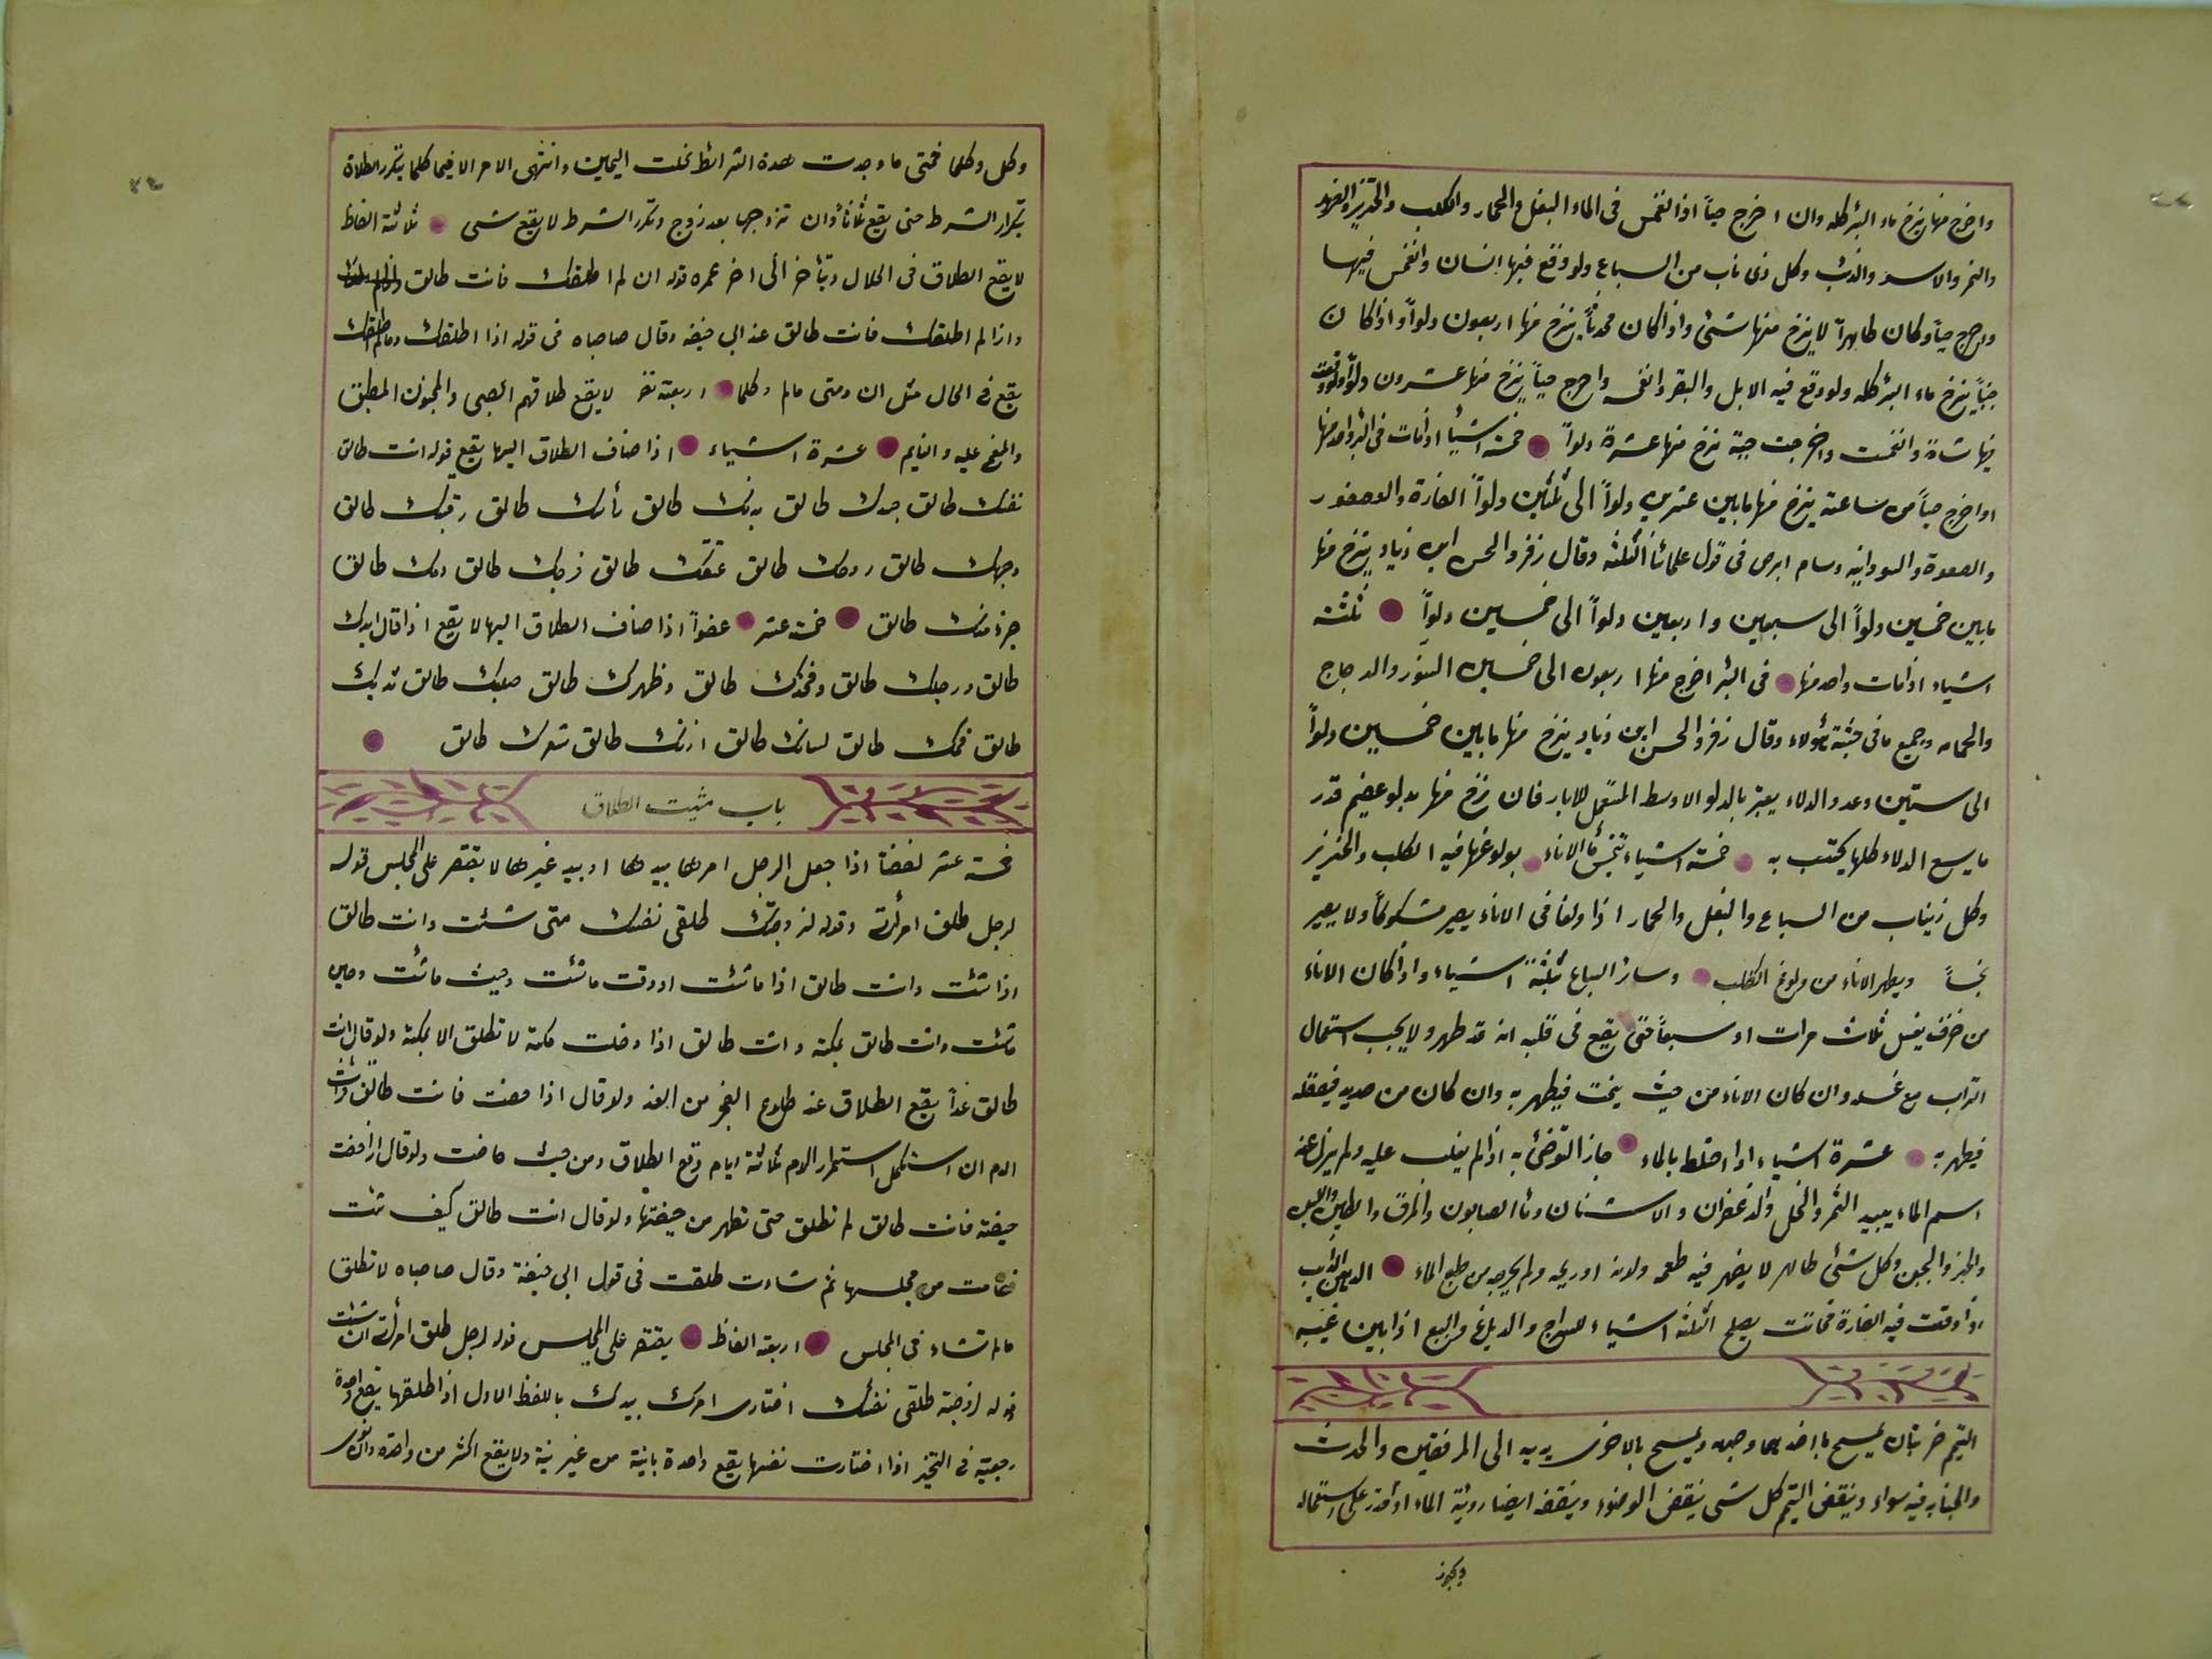 واخرج منها ينزح ماء البئر كله وان اخرج حياً اذا انغمس فى الماء البغل والحمار والكلب والخنزير والفهد
والنمر والاسد والذئب وكل ذى ناب من السباع ولو وقع فيها انسان وانغمس فيها
واخرج حياً وكان طاهراً لا ينزح منها شئ واذا كان محدثاً ينزح منها اربعون دلواً واذا كان
جنباً ينزح ماء البئر كله ولو وقع فيه الابل والبقر وانغمس واخرج حياً ينزح منها عشرون دلواً ولو وقعت
فيها شاة وانغمست واخرجت حية نزح منها عشرة دلواً خمسة اشيأ اذا مات فى البئر واحد منها
او اخرج حياً من ساعته ينزح منها ما بين عشرين دلواً الى ثلثين دلواً الفارة والعصفور
والصعوة والسودانيه وسام ابرص فى قول علمائنا الثلثه وقال زفر والحسن ابن زياد ينزح منها
ما بين خمسين دلواً الى سبعين واربعين دلواً الى خمسين دلواً ثلثة
اشياء اذا مات واحد منها فى البئر اخرج منها اربعون الى خمسين السنور والدجاج
والحمامه وجميع ما فى جثة هؤلاء وقال زفر والحسن ابن زياد ينزح منها ما بين خمسين دلواً
الى ستين وعدد الدلاء يعتبر بالدلو الاوسط المستعمل للابار فان نزح منها بدلو عضيم قدر
ما يسع الدلاء كلها يحتسب به خمسة اشياء تنجس الاناء بولوغها فيه الكلب والخنزير
وكل ذيناب من السباع والبغل والحمار اذا ولغا فى الاناء يصير مشكوكاً ولا يصير
نجساً ويطهر الاناء من ولوغ الكلب وسائر السباع ثلثة اشياء واذا كان الاناء
من خزف يغسل ثلاث مرات او سبعاً حتى يقع فى قلبه انه قد طهر ولا يجب استعمال
التراب مع غسله وان كان الاناء من خشب ينحت فيطهر به وان كان من حديد فيصقله
فيطهر به عشرة اشياء اذا اختلط بالماء جاز التوضئ به اذا لم يغلب عليه ولم يزل عنه
اسم الماء نبيد التمر والخل والزعفران والاشنان وماً الصابون والمرق والطين واللبن
والخبز والجبن وكل شئ طاهر لا يضهر فيه طعمه ولونه او ريحه ولم يخرجه من طبع الماء الدهن الذائب
اذا وقعت فيه الفارة فماتت يصلح لثلثة اشياء للسراج والدباغ والبيع اذا بين عيبه
التيم ضربتان يمسح باحدهما وجهه ويمسح بالاخرى يديه الى المرفقين والحدث
والجنابه فيه سواء وينقض التيم كل شى ينقض الوضوء وينقضه ايضا روئية الماء اذا قدر على استعماله
ويجوز
وكل وكلما فمتى ما وجدت هذه الشرائط نحلت اليمين وانتهى الامر الا فيما كلما يتكرر الطلاق
بتكرار الشرط حتى يقع ثلاثاً وان تزوجها بعد زوج وتكرر الشرط لا يقع شى ثلاثة الفاظ
لا يقع الطلاق فى الحلال ويتأخر الى اخر عمره قوله ان لم اطلقك فانت طالق
واذا لم اطلقك فانت طالق عند ابى حنيفه وقال صاحباه فى قوله اذا اطلقك وما لم اطلقك
يقع فى الحال مثل ان ومتى مالم وكلما اربعة نفر لا يقع طلاقهم الصبى والمجنون المطبق
والمغمى عليه والنايم عشرة اشياء اذا ضاف الطلاق اليها يقع قوله انت طالق
نفسك طالق جسدك طالق بدنك طالق رأسك طالق رقبتك طالق
وجهك طالق روحك طالق عنقك طالق فرجك طالق دمك طالق
جزء منك طالق خمسة عشر عضواً اذا ضاف الطلاق اليها لا يقع اذا قال يدك
طالق ورجلك طالق وفخدك طالق وظهرك طالق صلبك طالق ثديك
طالق فمك طالق لسانك طالق اذنك طالق شعرك طالق
باب مشيت الطلاق
خمسة عشر لفضاً اذا جعل الرجل امرها بيدها او بيد غيرها لا يقتصر على المجلس قوله
لرجل طلق امرأته وقوله لزوجتك طلقى نفسك متى شئت وانت طالق
اذا شئت وانت طالق اذا ما شئت او وقت ما شئت وحيث ما شئت وحين
ما شئت وانت طالق بمكة وانت طالق اذا دخلت مكة لا تطلق الا بمكة ولو قال انت
طالق غداً يقع الطلاق عند طلوع الفجر من الغد ولو قال اذا حضت فانت طالق
الدم ان استكمل استمرار الدم ثلاثة ايام وقع الطلاق ومن حيث حاضت ولو قال اذا حضت
حيضة فانت طالق لم تطلق حتى تطهر من حيضتها ولو قال انت طالق كيف شئت
فقامت من مجلسها ثم شاءت طلقت فى قول ابى حنيفة وقال صاحباه لا تطلق
مالم تشاء فى المجلس اربعة الفاظ يقتصر على المجلس قوله لرجل طلق امرأته ان شئت
قوله لزوجته طلقى نفسك اختارى امرك بيدك باللفظ الاول اذا طلقها يقع واحدة
رجعية فى التخير اذا اختارت نفسها يقع واحدة باينة من غير نية ولا يقع اكثر من واحدة وان نوى